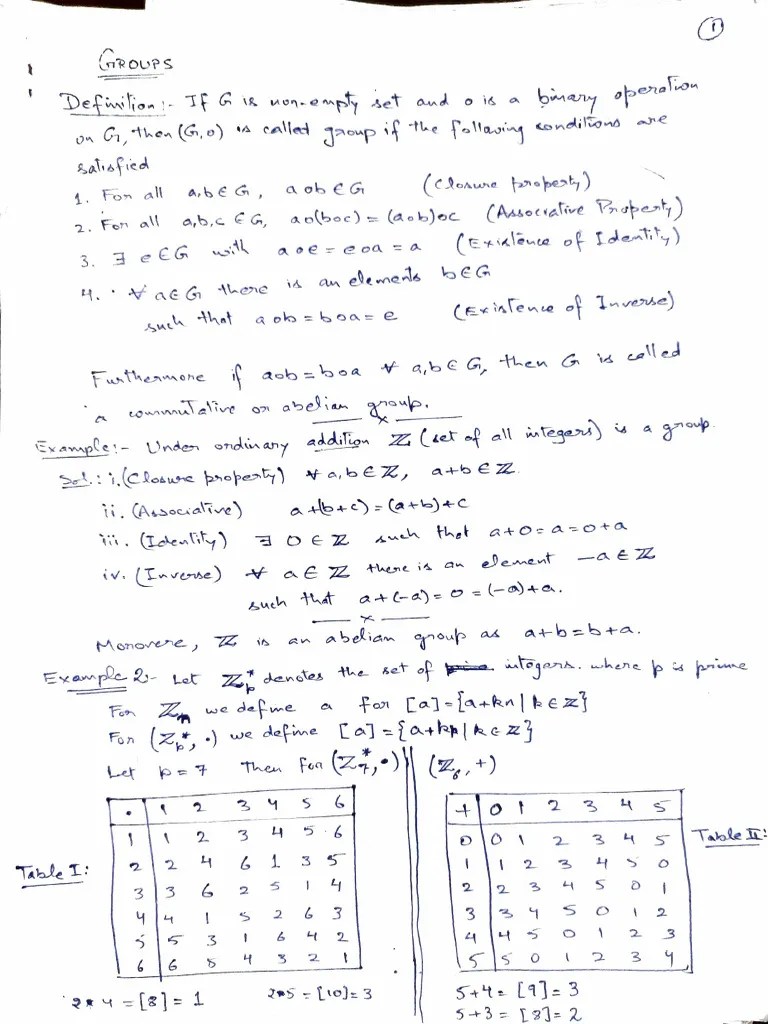 1
GROUPS
Definition:- If G is non-empty set and o is a binary operation
on G, then (G,o) is called group if the following conditions are
satisfied
1. For all a,b∈G, aob∈G (Closure property)
2. For all a,b,c ∈G, ao(boc) = (aob)oc (Associative Property)
3. ∃ e∈G with aoe = eoa = a (Existence of Identity)
4. ∀ a∈G there is an elements b∈G
such that aob = boa = e (Existence of Inverse)
Furthermore if aob = boa ∀ a,b∈G, then G is called
a commutative or abelian group.
Example:- Under ordinary addition ℤ (set of all integers) is a group.
Sol.: i. (Closure property) ∀ a,b∈ℤ, a+b∈ℤ.
ii. (Associative) a+(b+c) = (a+b)+c
iii. (Identity) ∃ 0∈ℤ such that a+0=a=0+a
iv. (Inverse) ∀ a∈ℤ there is an element -a∈ℤ
such that a+(-a) = 0 = (-a)+a.
Moreover, ℤ is an abelian group as a+b=b+a.
Example 2:- Let ℤₚ* denotes the set of integers. where p is prime
For ℤₙ we define a for [a]={a+kn | k∈ℤ}
For (ℤₚ*, •) we define [a] = {a+kp | k∈ℤ}
Let p=7 Then for (ℤ₇*, •) (ℤ₆, +)
Table I:
• 1 2 3 4 5 6
1 1 2 3 4 5 6
2 2 4 6 1 3 5
3 3 6 2 5 1 4
4 4 1 5 2 6 3
5 5 3 1 6 4 2
6 6 5 4 3 2 1
2•4 = [8] = 1 2•5 = [10] = 3
Table II:
+ 0 1 2 3 4 5
0 0 1 2 3 4 5
1 1 2 3 4 5 0
2 2 3 4 5 0 1
3 3 4 5 0 1 2
4 4 5 0 1 2 3
5 5 0 1 2 3 4
5+4 = [9] = 3
5+3 = [8] = 2